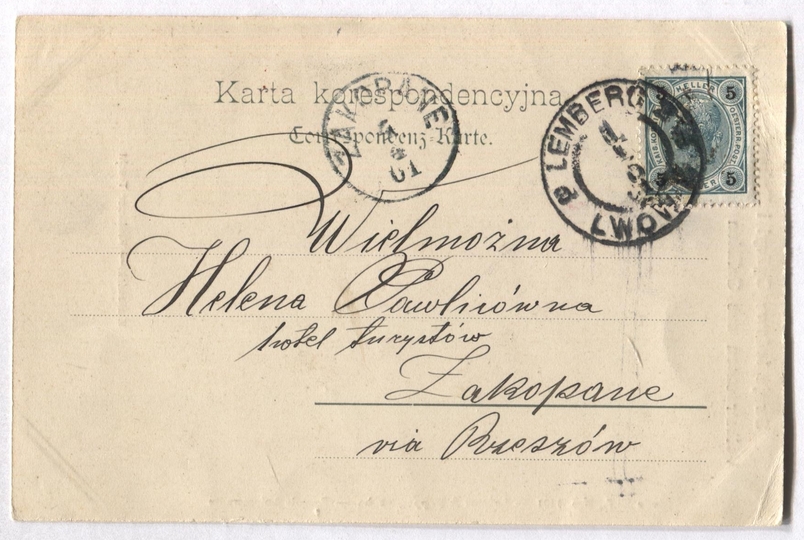 Karta korespondencyjna
Correspondenz-Karte.
ZAKOPANE
01
LEMBERG
LWÓW
5 HELLER 5
OESTERR. POST
5 5
Wielmożna
Helena Pawlicówna
hotel turystów
Zakopane
via Rzeszów